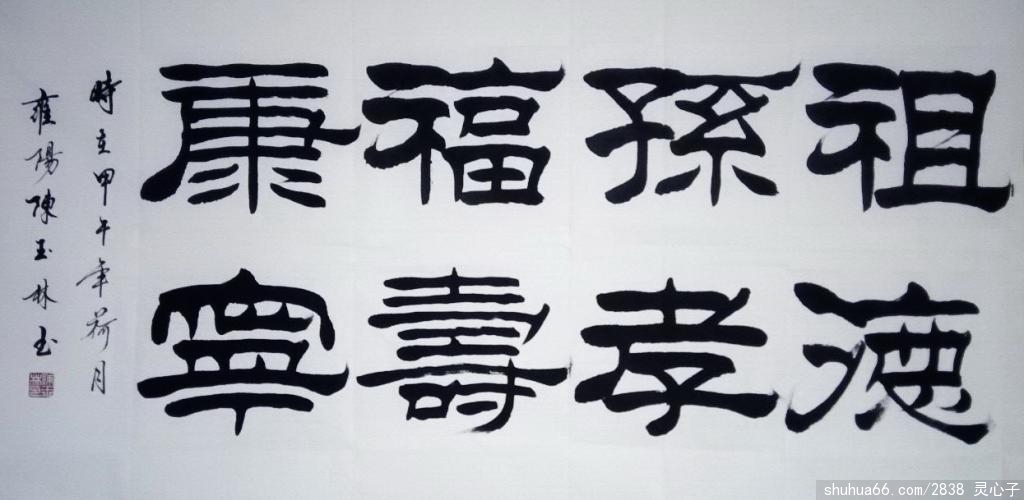 祖德
孫孝
福壽
康寧
時在甲午年荷月
雍陽陳玉林书
shuhua66.com/2838 灵心子